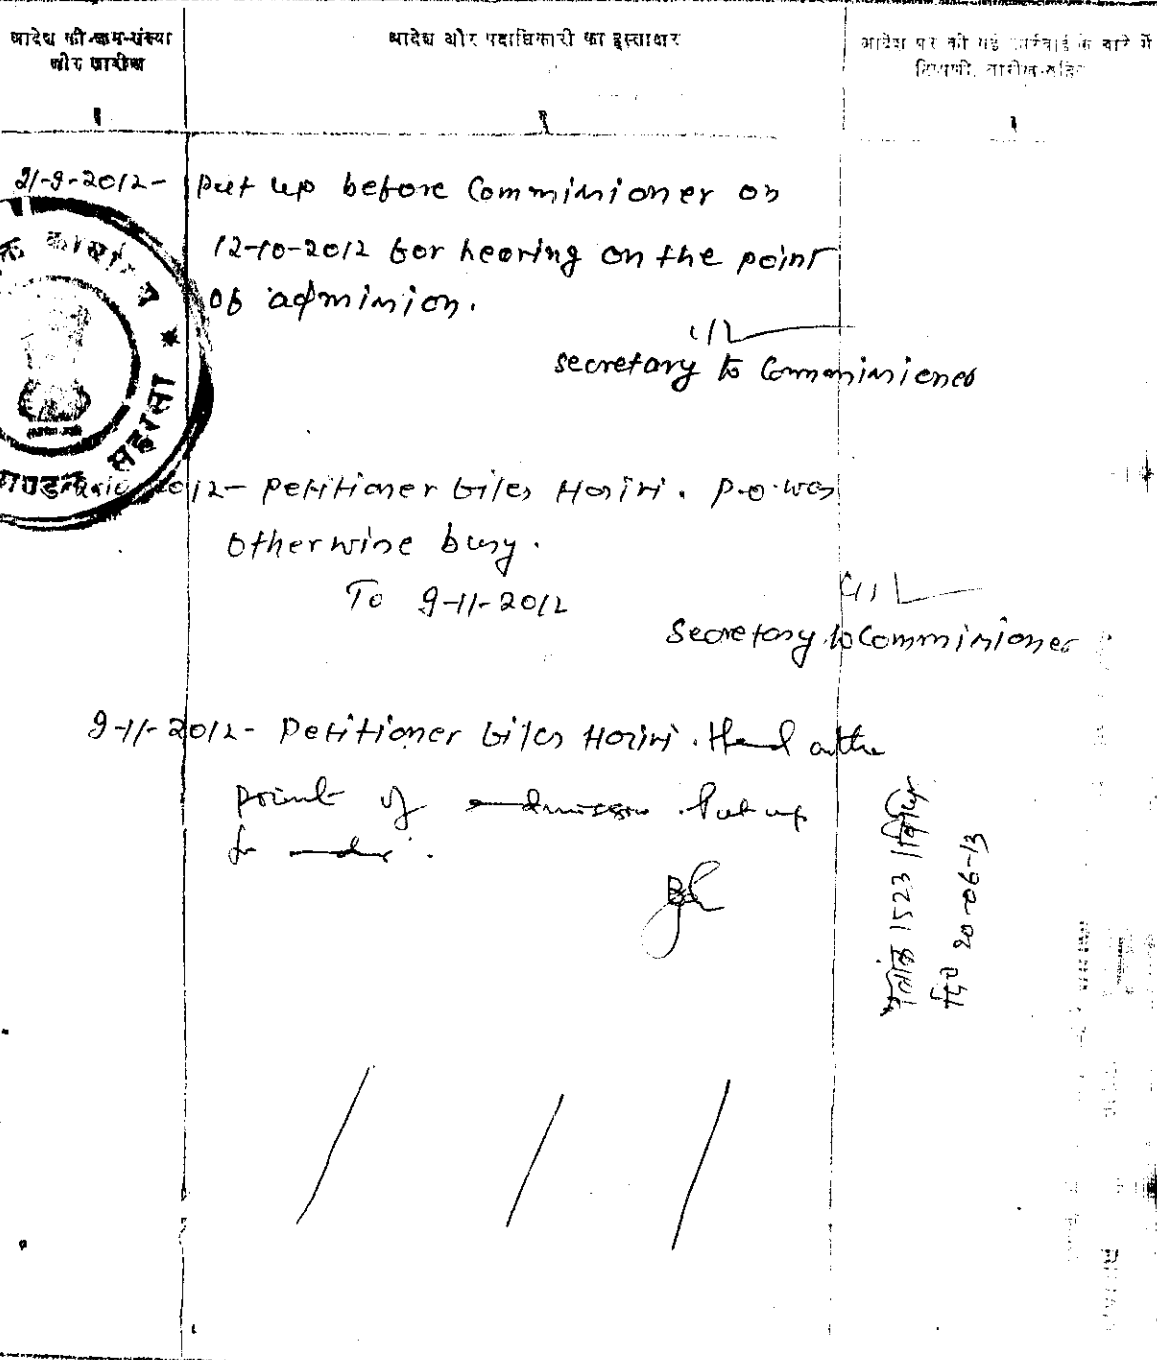 आदेश की क्रम-संख्या
और तारीख
आदेश और पदाधिकारी का हस्ताक्षर
आदेश पर की गई कार्रवाई के बारे में
टिप्पणी, तारीख-सहित
१
२
३
21-9-2012- Put up before Commissioner on
12-10-2012 for hearing on the point
of admission.
Secretary to Commissioner
कार्यालय
सहरसा
2012- Petitioner files Haziri. P.O. was
otherwise busy.
To 9-11-2012
Secretary to Commissioner
9-11-2012- Petitioner files Haziri. Heard on the
point of admission. Put up
for order.
1523
20-06-13